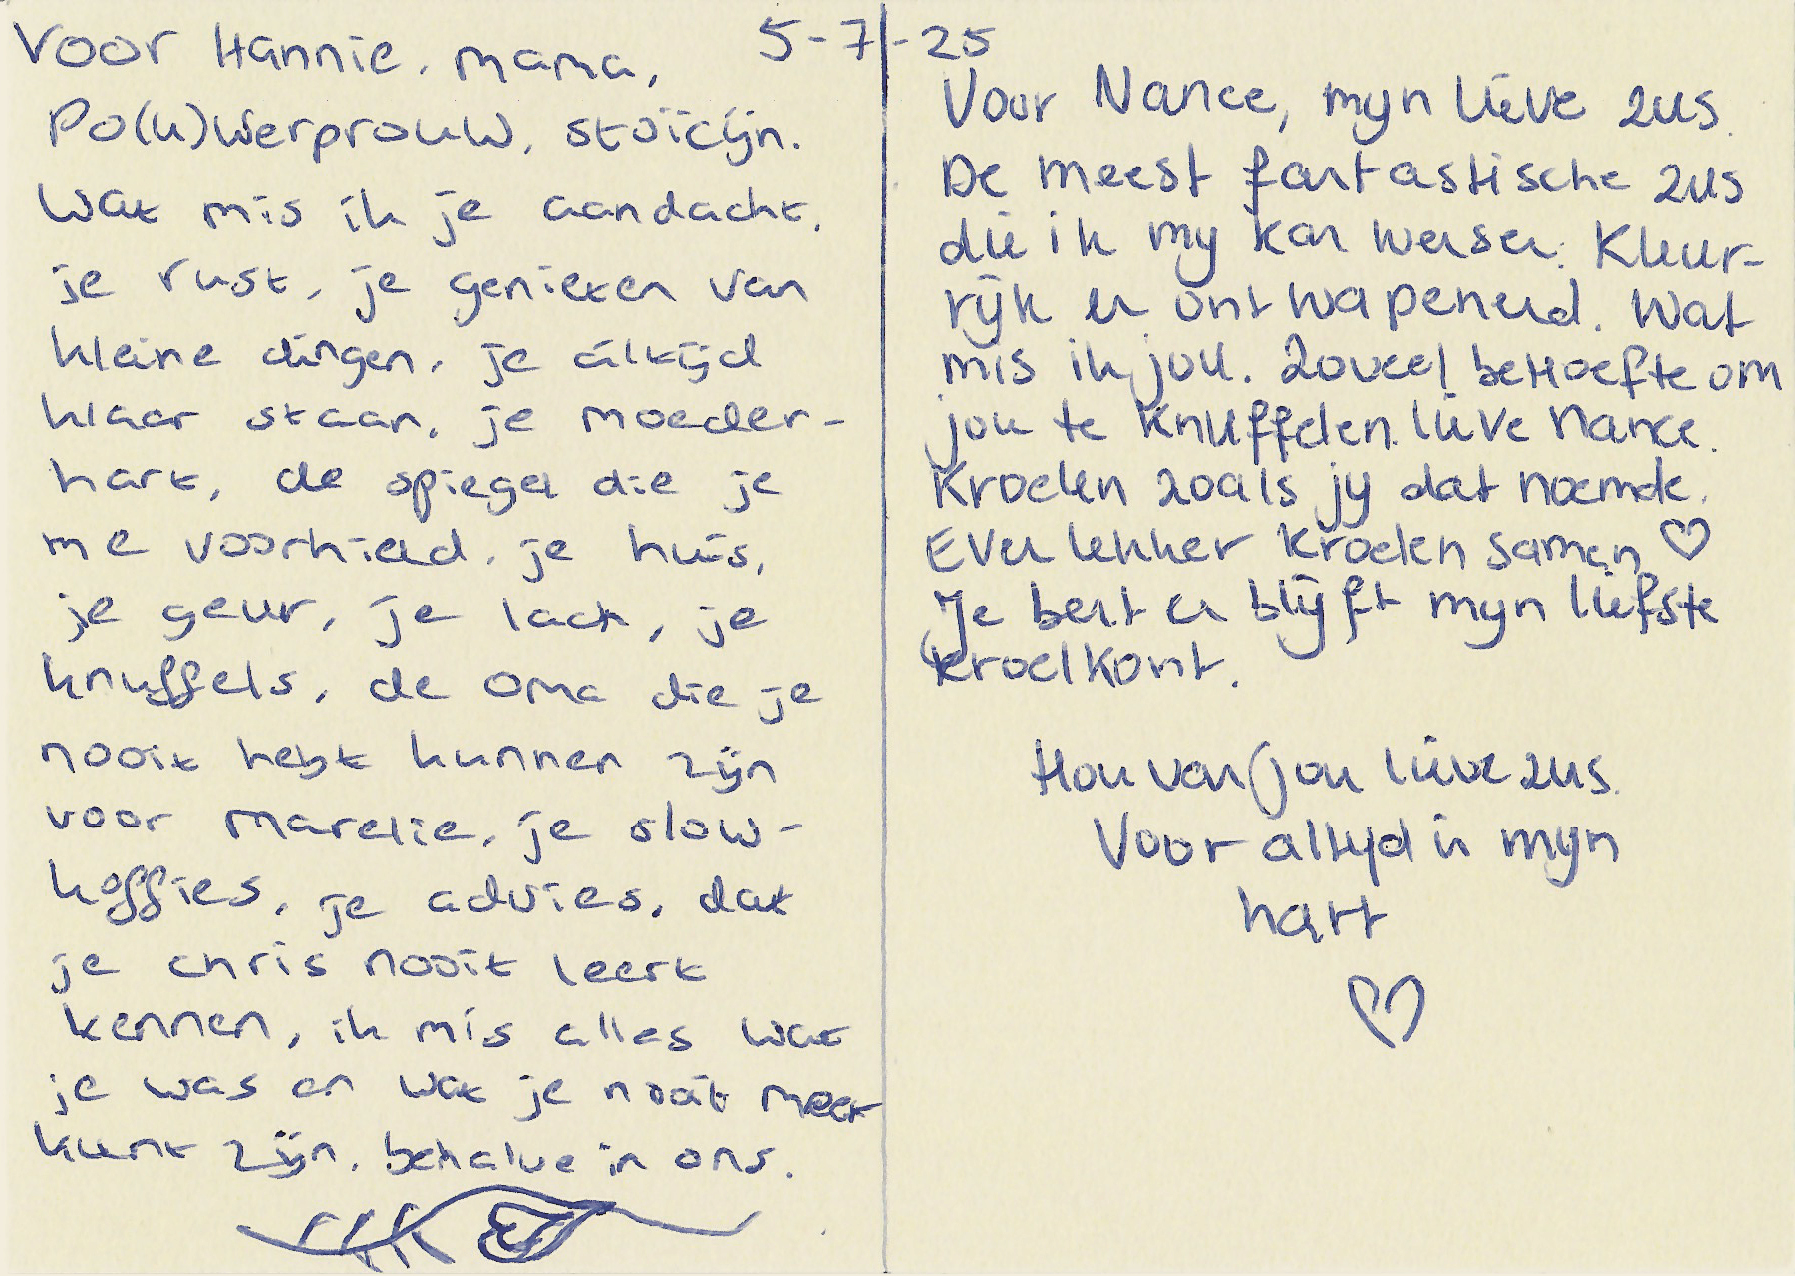 5-7-25
Voor Hannie, mama,
Po(u)werprouw, stoïcijn.
Wat mis ik je aandacht,
je rust, je genieten van
kleine dingen, je altijd
klaar staan, je moeder-
hart, de spiegel die je
me voorhield, je huis,
je geur, je lach, je
knuffels, de oma die je
nooit hebt kunnen zijn
voor Marelie, je slow-
koffies, je advies, dat
je chris nooit leert
kennen, ik mis alles wat
je was en wat je nooit meer
kunt zijn, behalve in ons.
Voor Nance, mijn lieve zus.
De meest fantastische zus
die ik mij kan wensen. Kleur-
rijk en ontwapenend. Wat
mis ik jou. Zoveel beHoefte om
jou te knuffelen lieve Nance.
Kroelen zoals jij dat noemde.
Even lekker kroelen samen ♡
Je bent en blijft mijn liefste
kroelkont.
Hou van jou lieve zus.
Voor altijd in mijn
hart
♡